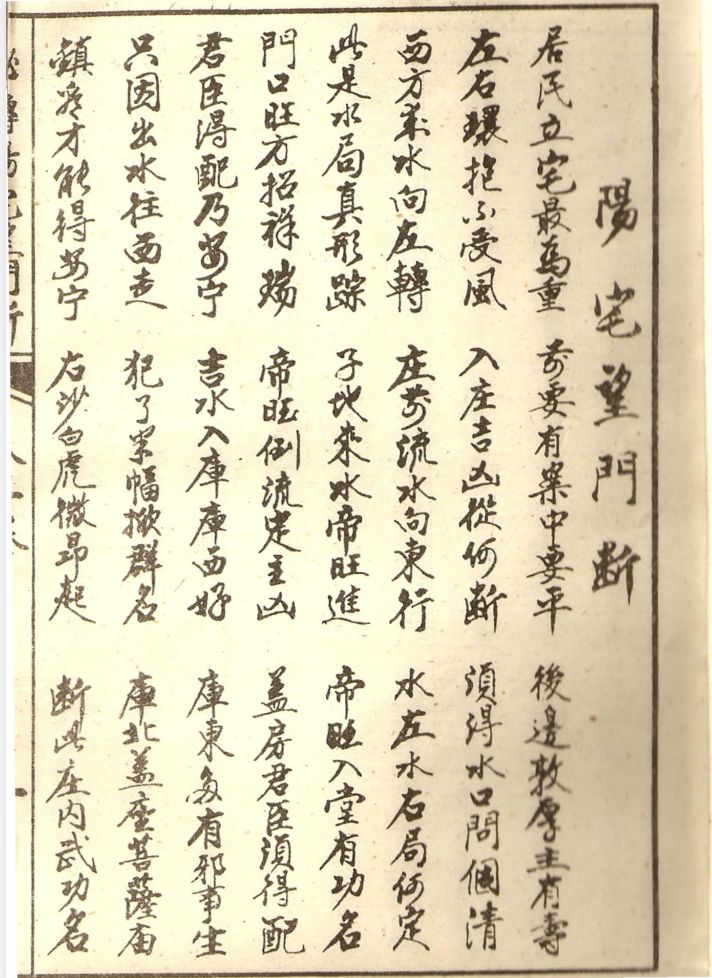 陽宅望門断
居民立宅最為重 前要有案中要平 後邊敦厚主有壽
左右環抱不受風 入庄吉凶從何断 須得水口問個清
西方來水向左轉 庄前流水向東行 水左水右局何定
此是水局真形踪 子地來水帝旺進 帝旺入堂有功名
門口旺方招祥瑞 帝旺倒流定主凶 蓋房君臣須得配
君臣得配乃安宁 吉水入庫庫西好 庫東多有邪事生
只因出水往西走 犯了幅群名 庫北蓋座菩薩庙
鎮才能得安宁 右沙白虎微昂起 断此庄内武功名